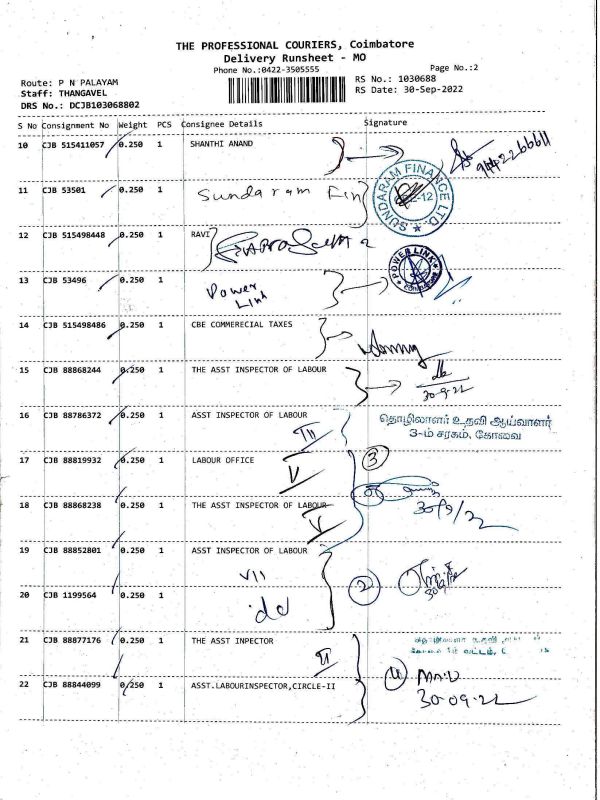 THE PROFESSIONAL COURIERS, Coimbatore
Delivery Runsheet - MO
Phone No.:0422-3505555 Page No.:2
Route: P N PALAYAM RS No.: 1030688
Staff: THANGAVEL RS Date: 30-Sep-2022
DRS No.: DCJB103068802
S No Consignment No Weight PCS Consignee Details Signature
10 CJB 515411057 0.250 1 SHANTHI ANAND
11 CJB 53501 0.250 1 Sundaram Fin SUNDARAM FINANCE LTD
12 CJB 515498448 0.250 1 RAVI
13 CJB 53496 0.250 1 Power Link POWER LINK
14 CJB 515498486 0.250 1 CBE COMMERECIAL TAXES
15 CJB 88868244 0.250 1 THE ASST INSPECTOR OF LABOUR
30-9-22
16 CJB 88786372 0.250 1 ASST INSPECTOR OF LABOUR தொழிலாளர் உதவி ஆய்வாளர்
III 3-ம் சரகம், கோவை
17 CJB 88819932 0.250 1 LABOUR OFFICE 3
V
18 CJB 88868238 0.250 1 THE ASST INSPECTOR OF LABOUR
V 30/9/22
19 CJB 88852801 0.250 1 ASST INSPECTOR OF LABOUR
VII 2
20 CJB 1199564 0.250 1
21 CJB 88877176 0.250 1 THE ASST INPECTOR
II
22 CJB 88844099 0/250 1 ASST.LABOURINSPECTOR,CIRCLE-II
30-09-22